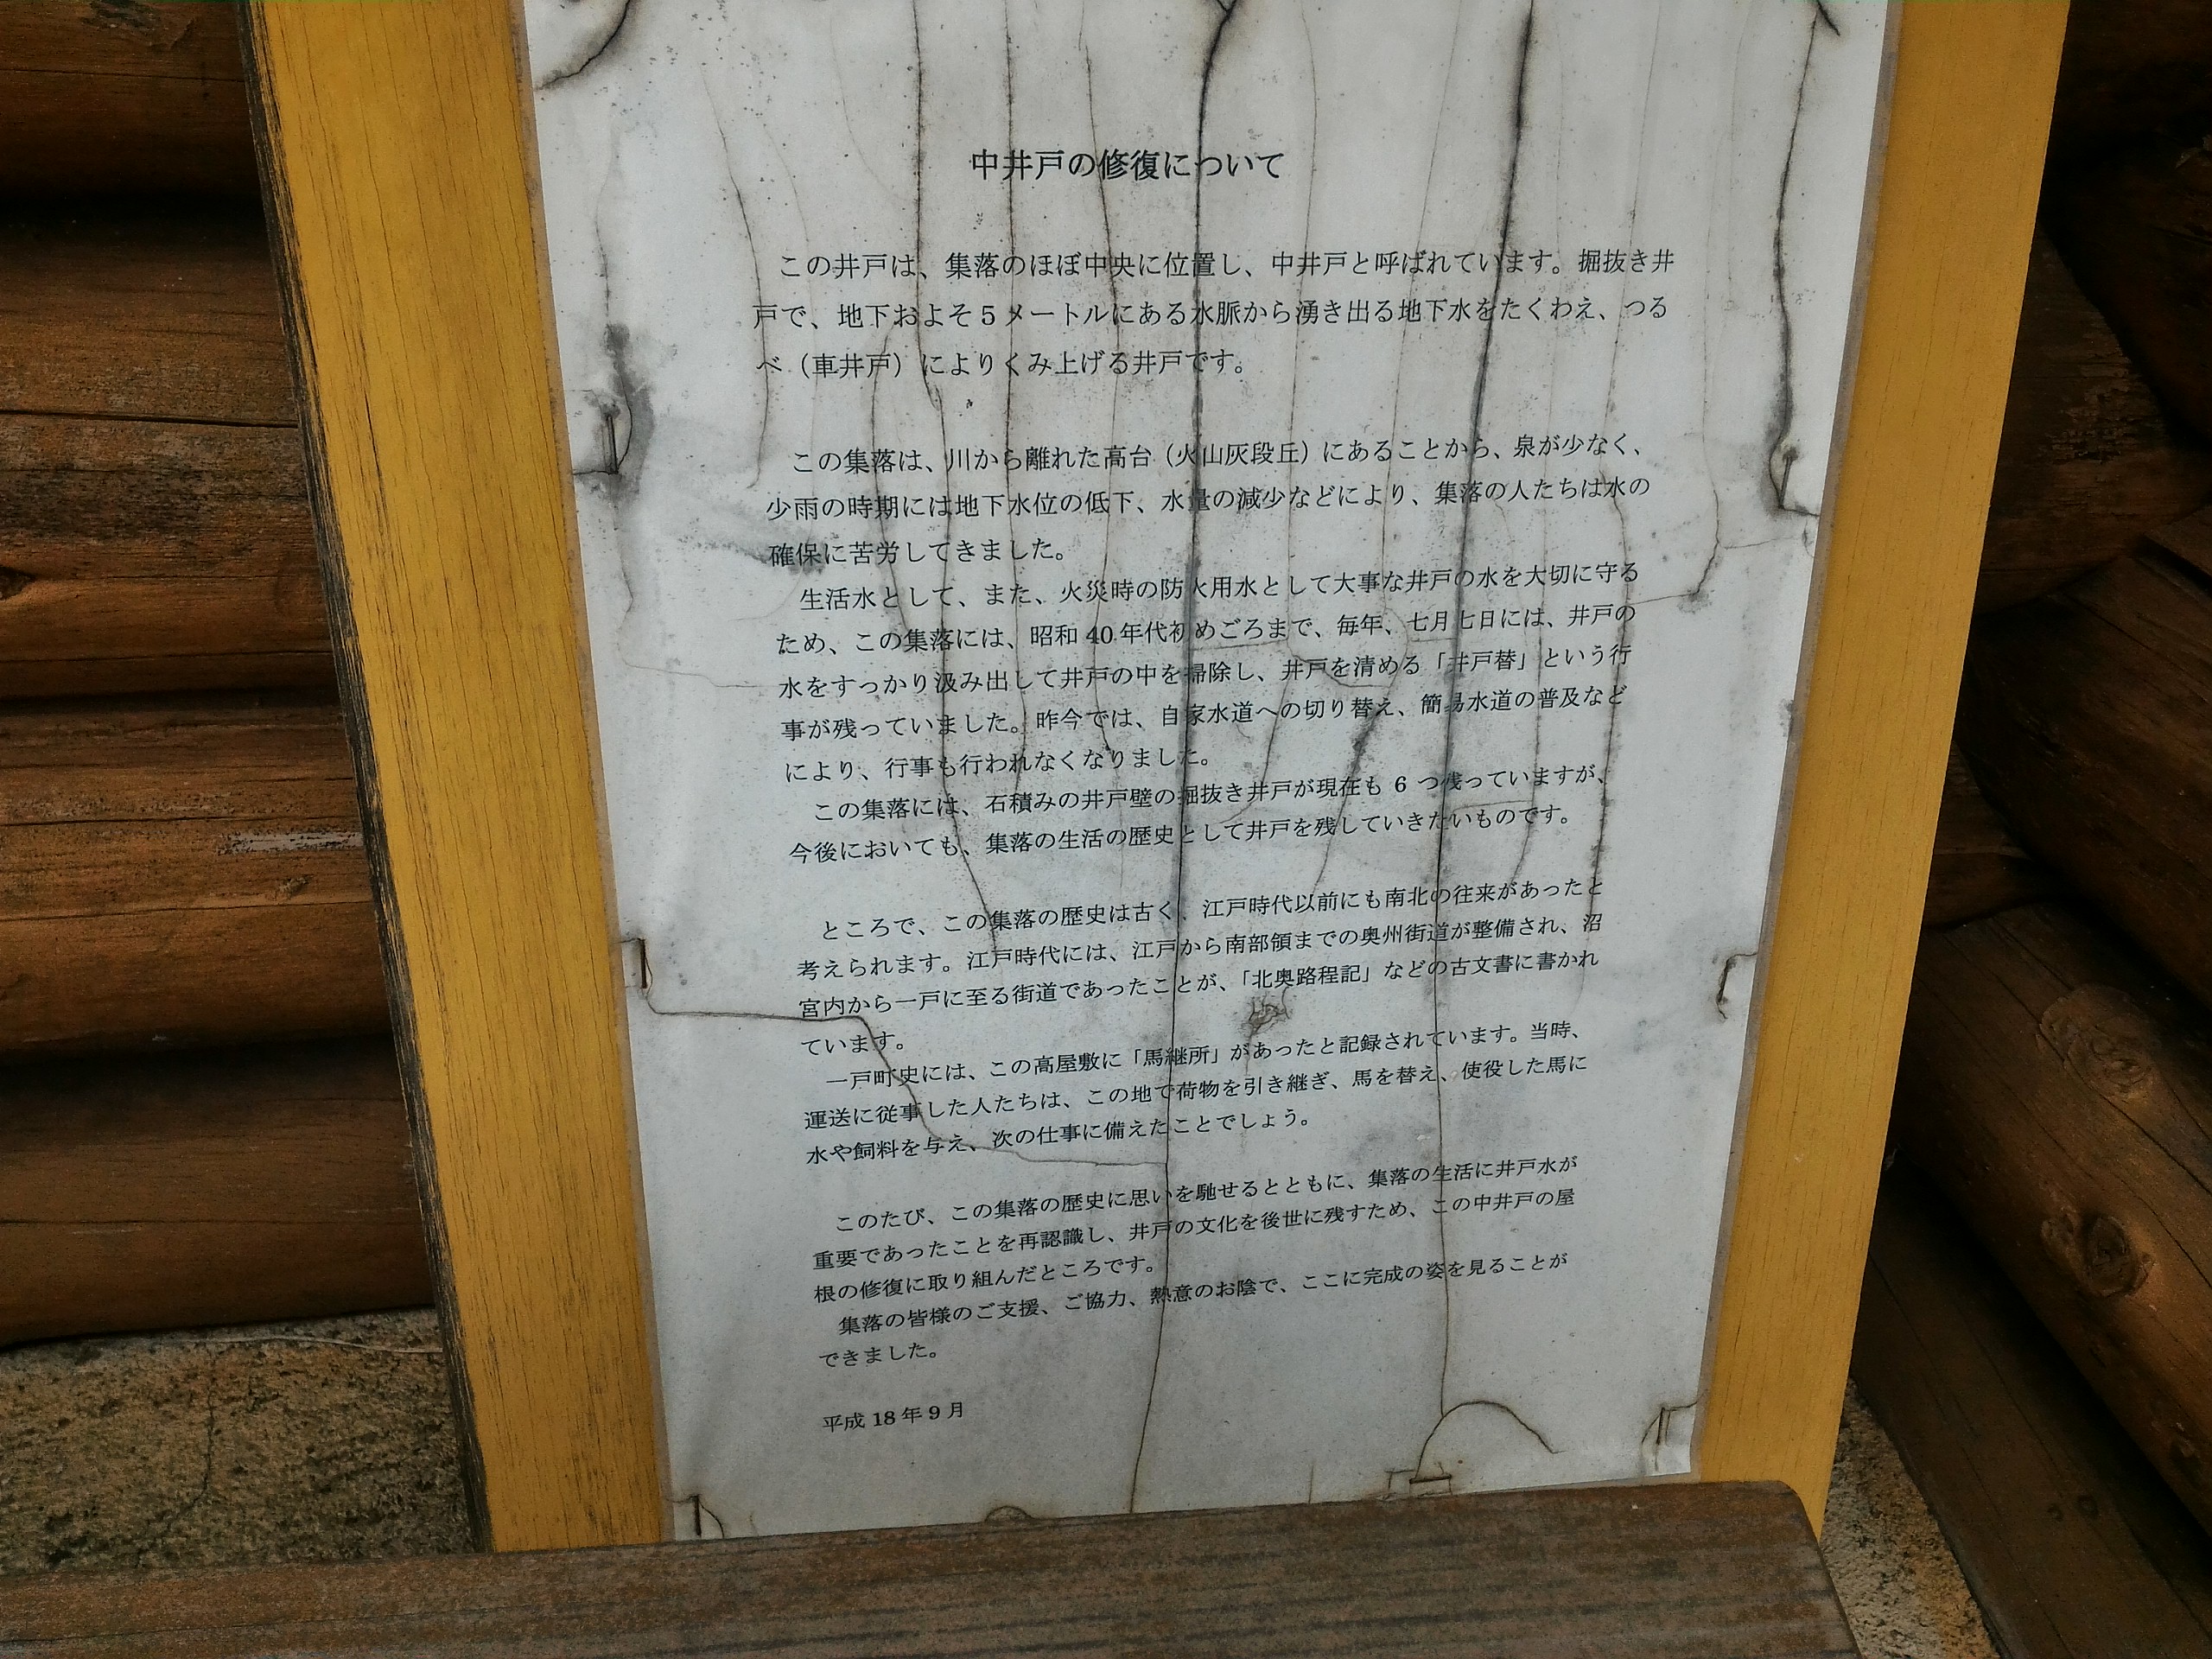 中井戸の修復について
この井戸は、集落のほぼ中央に位置し、中井戸と呼ばれています。掘抜き井
戸で、地下およそ5メートルにある水脈から湧き出る地下水をたくわえ、つる
べ（車井戸）によりくみ上げる井戸です。
この集落は、川から離れた高台（火山灰段丘）にあることから、泉が少なく、
少雨の時期には地下水位の低下、水量の減少などにより、集落の人たちは水の
確保に苦労してきました。
生活水として、また、火災時の防火用水として大事な井戸の水を大切に守る
ため、この集落には、昭和40年代初めごろまで、毎年、七月七日には、井戸の
水をすっかり汲み出して井戸の中を掃除し、井戸を清める「井戸替」という行
事が残っていました。昨今では、自家水道への切り替え、簡易水道の普及など
により、行事も行われなくなりました。
この集落には、石積みの井戸壁の掘抜き井戸が現在も6つ残っていますが、
今後においても、集落の生活の歴史として井戸を残していきたいものです。
ところで、この集落の歴史は古く、江戸時代以前にも南北の往来があったと
考えられます。江戸時代には、江戸から南部領までの奥州街道が整備され、沼
宮内から一戸に至る街道であったことが、「北奥路程記」などの古文書に書かれ
ています。
一戸町史には、この高屋敷に「馬継所」があったと記録されています。当時、
運送に従事した人たちは、この地で荷物を引き継ぎ、馬を替え、使役した馬に
水や飼料を与え、次の仕事に備えたことでしょう。
このたび、この集落の歴史に思いを馳せるとともに、集落の生活に井戸水が
重要であったことを再認識し、井戸の文化を後世に残すため、この中井戸の屋
根の修復に取り組んだところです。
集落の皆様のご支援、ご協力、熱意のお陰で、ここに完成の姿を見ることが
できました。
平成18年9月